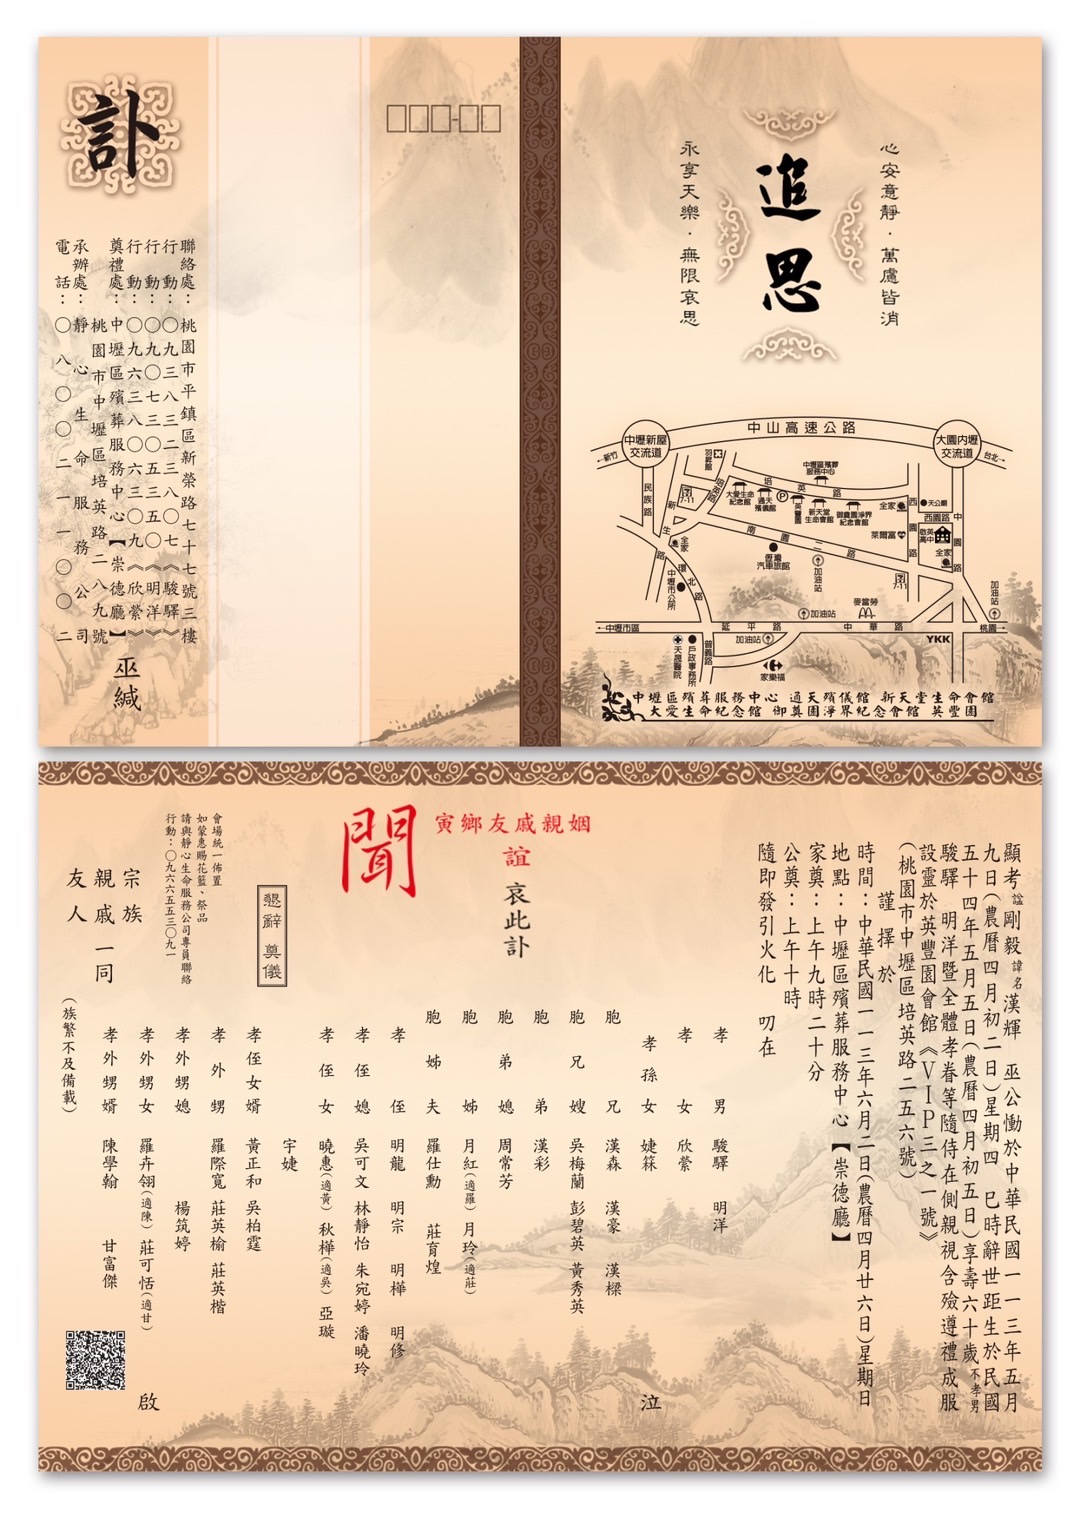 訃
聯絡處：桃園市平鎮區新榮路七十七號三樓
行動：〇九三八三二三八〇七《駿驛》
行動：〇九〇七三〇五三五〇《明洋》
行動：〇九六三八〇六三〇九《欣縈》
奠禮處：中壢區殯葬服務中心【崇德廳】
桃園市中壢區培英路二八九號
承辦處：靜心生命服務公司
電話：〇八〇〇二一〇〇二
巫緘
心安意靜．萬慮皆消
追思
永享天樂．無限哀思
中山高速公路
中壢新屋交流道
大園內壢交流道
新竹
台北
羽昇館
中壢區殯葬服務中心
民族路
培英路
培英路
大愛生命紀念館
通天殯儀館
P
英豐園
新天堂生命會館
御奠園淨界紀念會館
全家
天公廟
西園路
西園路
中園路
啟英高中
萊爾富
全家
新生路
全家
環北路
南園二路
億灘汽車旅館
加油站
中壢市公所
加油站
麥當勞
加油站
中壢市區
延平路
中華路
桃園
加油站
YKK
天晟醫院
戶政事務所
普義路
家樂福
中壢區殯葬服務中心 通天殯儀館 新天堂生命會館
大愛生命紀念館 御奠園淨界紀念會館 英豐園
顯考諡剛毅諱名漢輝 巫公慟於中華民國一一三年五月
九日(農曆四月初二日)星期四 巳時辭世距生於民國
五十四年五月五日(農曆四月初五日)享壽六十歲不孝男
駿驛 明洋暨全體孝眷等隨侍在側親視含殮遵禮成服
設靈於英豐園會館《VIP三之一號》
(桃園市中壢區培英路二五六號)
謹擇於
時間：中華民國一一三年六月二日(農曆四月廿六日)星期日
地點：中壢區殯葬服務中心【崇德廳】
家奠：上午九時二十分
公奠：上午十時
隨即發引火化 叨在
寅鄉友戚親姻
誼 哀此訃
聞
孝男 駿驛 明洋
孝女 欣縈
孝孫女 婕箖
泣
胞兄 漢森 漢豪 漢樑
胞兄嫂 吳梅蘭 彭碧英 黃秀英
胞弟 漢彩
胞弟媳 周常芳
胞姊 月紅(適羅) 月玲(適莊)
胞姊夫 羅仕勳 莊育煌
孝侄 明龍 明宗 明樺 明修
孝侄媳 吳可文 林靜怡 朱宛婷 潘曉玲
孝侄女 曉惠(適黃) 秋樺(適吳) 亞璇
宇婕
孝侄女婿 黃正和 吳柏霆
孝外甥 羅際寬 莊英榆 莊英楷
孝外甥媳 楊筑婷
孝外甥女 羅卉翎(適陳) 莊可恬(適甘)
孝外甥婿 陳學翰 甘富傑
(族繁不及備載)
懇辭 奠儀
會場統一佈置
如蒙惠賜花籃、祭品
請與靜心生命服務公司專員聯絡
行動：〇九六六五五三〇九一
宗族
親戚一同
友人
啟